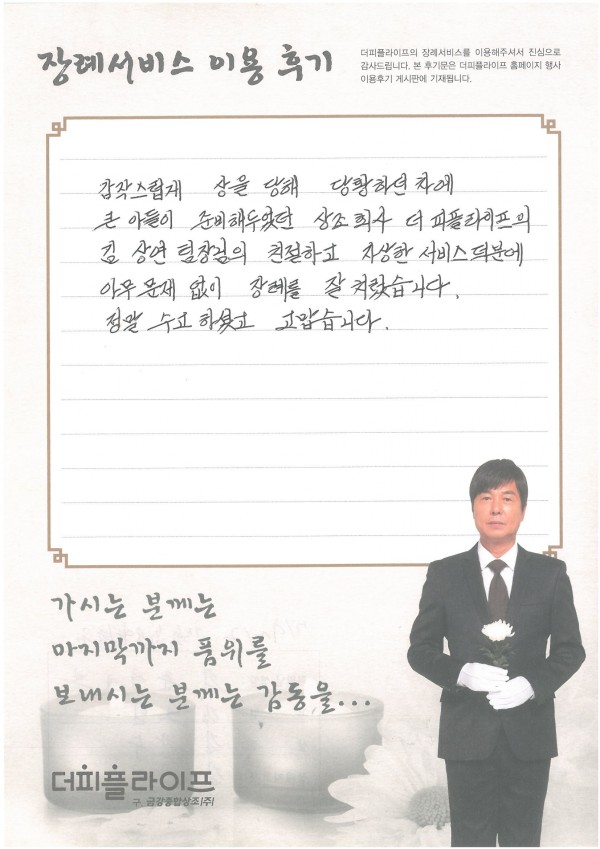 장례서비스 이용 후기
더피플라이프의 장례서비스를 이용해주셔서 진심으로
감사드립니다. 본 후기문은 더피플라이프 홈페이지 행사
이용후기 게시판에 기재됩니다.
갑작스럽게 상을 당해 당황하던 차에
큰 아들이 준비해두었던 상조회사 더 피플라이프의
김 상연 팀장님의 친절하고 자상한 서비스 덕분에
아무 문제 없이 장례를 잘 치렀습니다.
정말 수고 하셨고 고맙습니다.
가시는 분께는
마지막까지 품위를
보내시는 분께는 감동을...
더피플라이프
구. 금강종합상조(주)